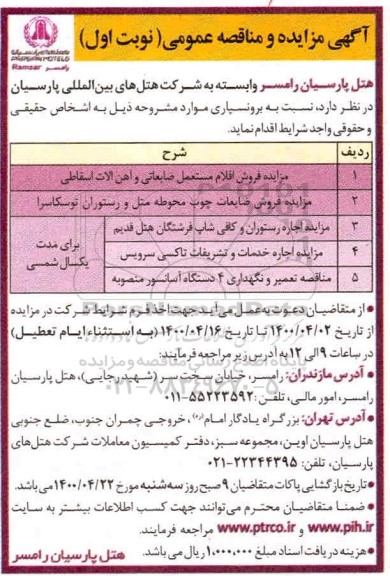 آگهی مزایده و مناقصه عمومی (نوبت اول)
PARSIAN HOTELS
Ramsar رامسر
هتل پارسیان رامسر وابسته به شرکت هتل‌های بین‌المللی پارسیان
در نظر دارد، نسبت به برونسپاری موارد مشروحه ذیل به اشخاص حقیقی
و حقوقی واجد شرایط اقدام نماید.
ردیف شرح
۱ مزایده فروش اقلام مستعمل ضایعاتی و آهن آلات اسقاطی
۲ مزایده فروش ضایعات چوب محوطه متل و رستوران توسکاسرا
۳ مزایده اجاره رستوران و کافی شاپ فرشتگان هتل قدیم
۴ مزایده اجاره خدمات و تشریفات تاکسی سرویس
۵ مناقصه تعمیر و نگهداری ۴ دستگاه آسانسور منصوبه
برای مدت
یکسال شمسی
• از متقاضیان دعوت به عمل می‌آید جهت اخذ فرم شرایط شرکت در مزایده
از تاریخ ۱۴۰۰/۰۴/۰۲ تا تاریخ ۱۴۰۰/۰۴/۱۶ (به استثناء ایام تعطیل)
در ساعات ۹ الی ۱۲ به آدرس زیر مراجعه فرمایند:
• آدرس مازندران: رامسر، خیابان (شهید رجایی)، هتل پارسیان
رامسر، امور مالی، تلفن: ۵۵۲۲۳۵۹۲-۰۱۱
• آدرس تهران: بزرگراه یادگار امام (ره)، خروجی چمران جنوب، ضلع جنوبی
هتل پارسیان اوین، مجموعه سبز، دفتر کمیسیون معاملات شرکت هتل‌های
پارسیان، تلفن: ۲۲۳۴۴۳۹۵-۰۲۱
• تاریخ بازگشایی پاکات متقاضیان ۹ صبح روز سه‌شنبه مورخ ۱۴۰۰/۰۴/۲۲ می‌باشد.
• ضمنا متقاضیان محترم می‌توانند جهت کسب اطلاعات بیشتر به سایت
www.pih.ir و www.ptrco.ir مراجعه فرمایند.
• هزینه دریافت اسناد مبلغ ۱,۰۰۰,۰۰۰ ریال می‌باشد.
هتل پارسیان رامسر